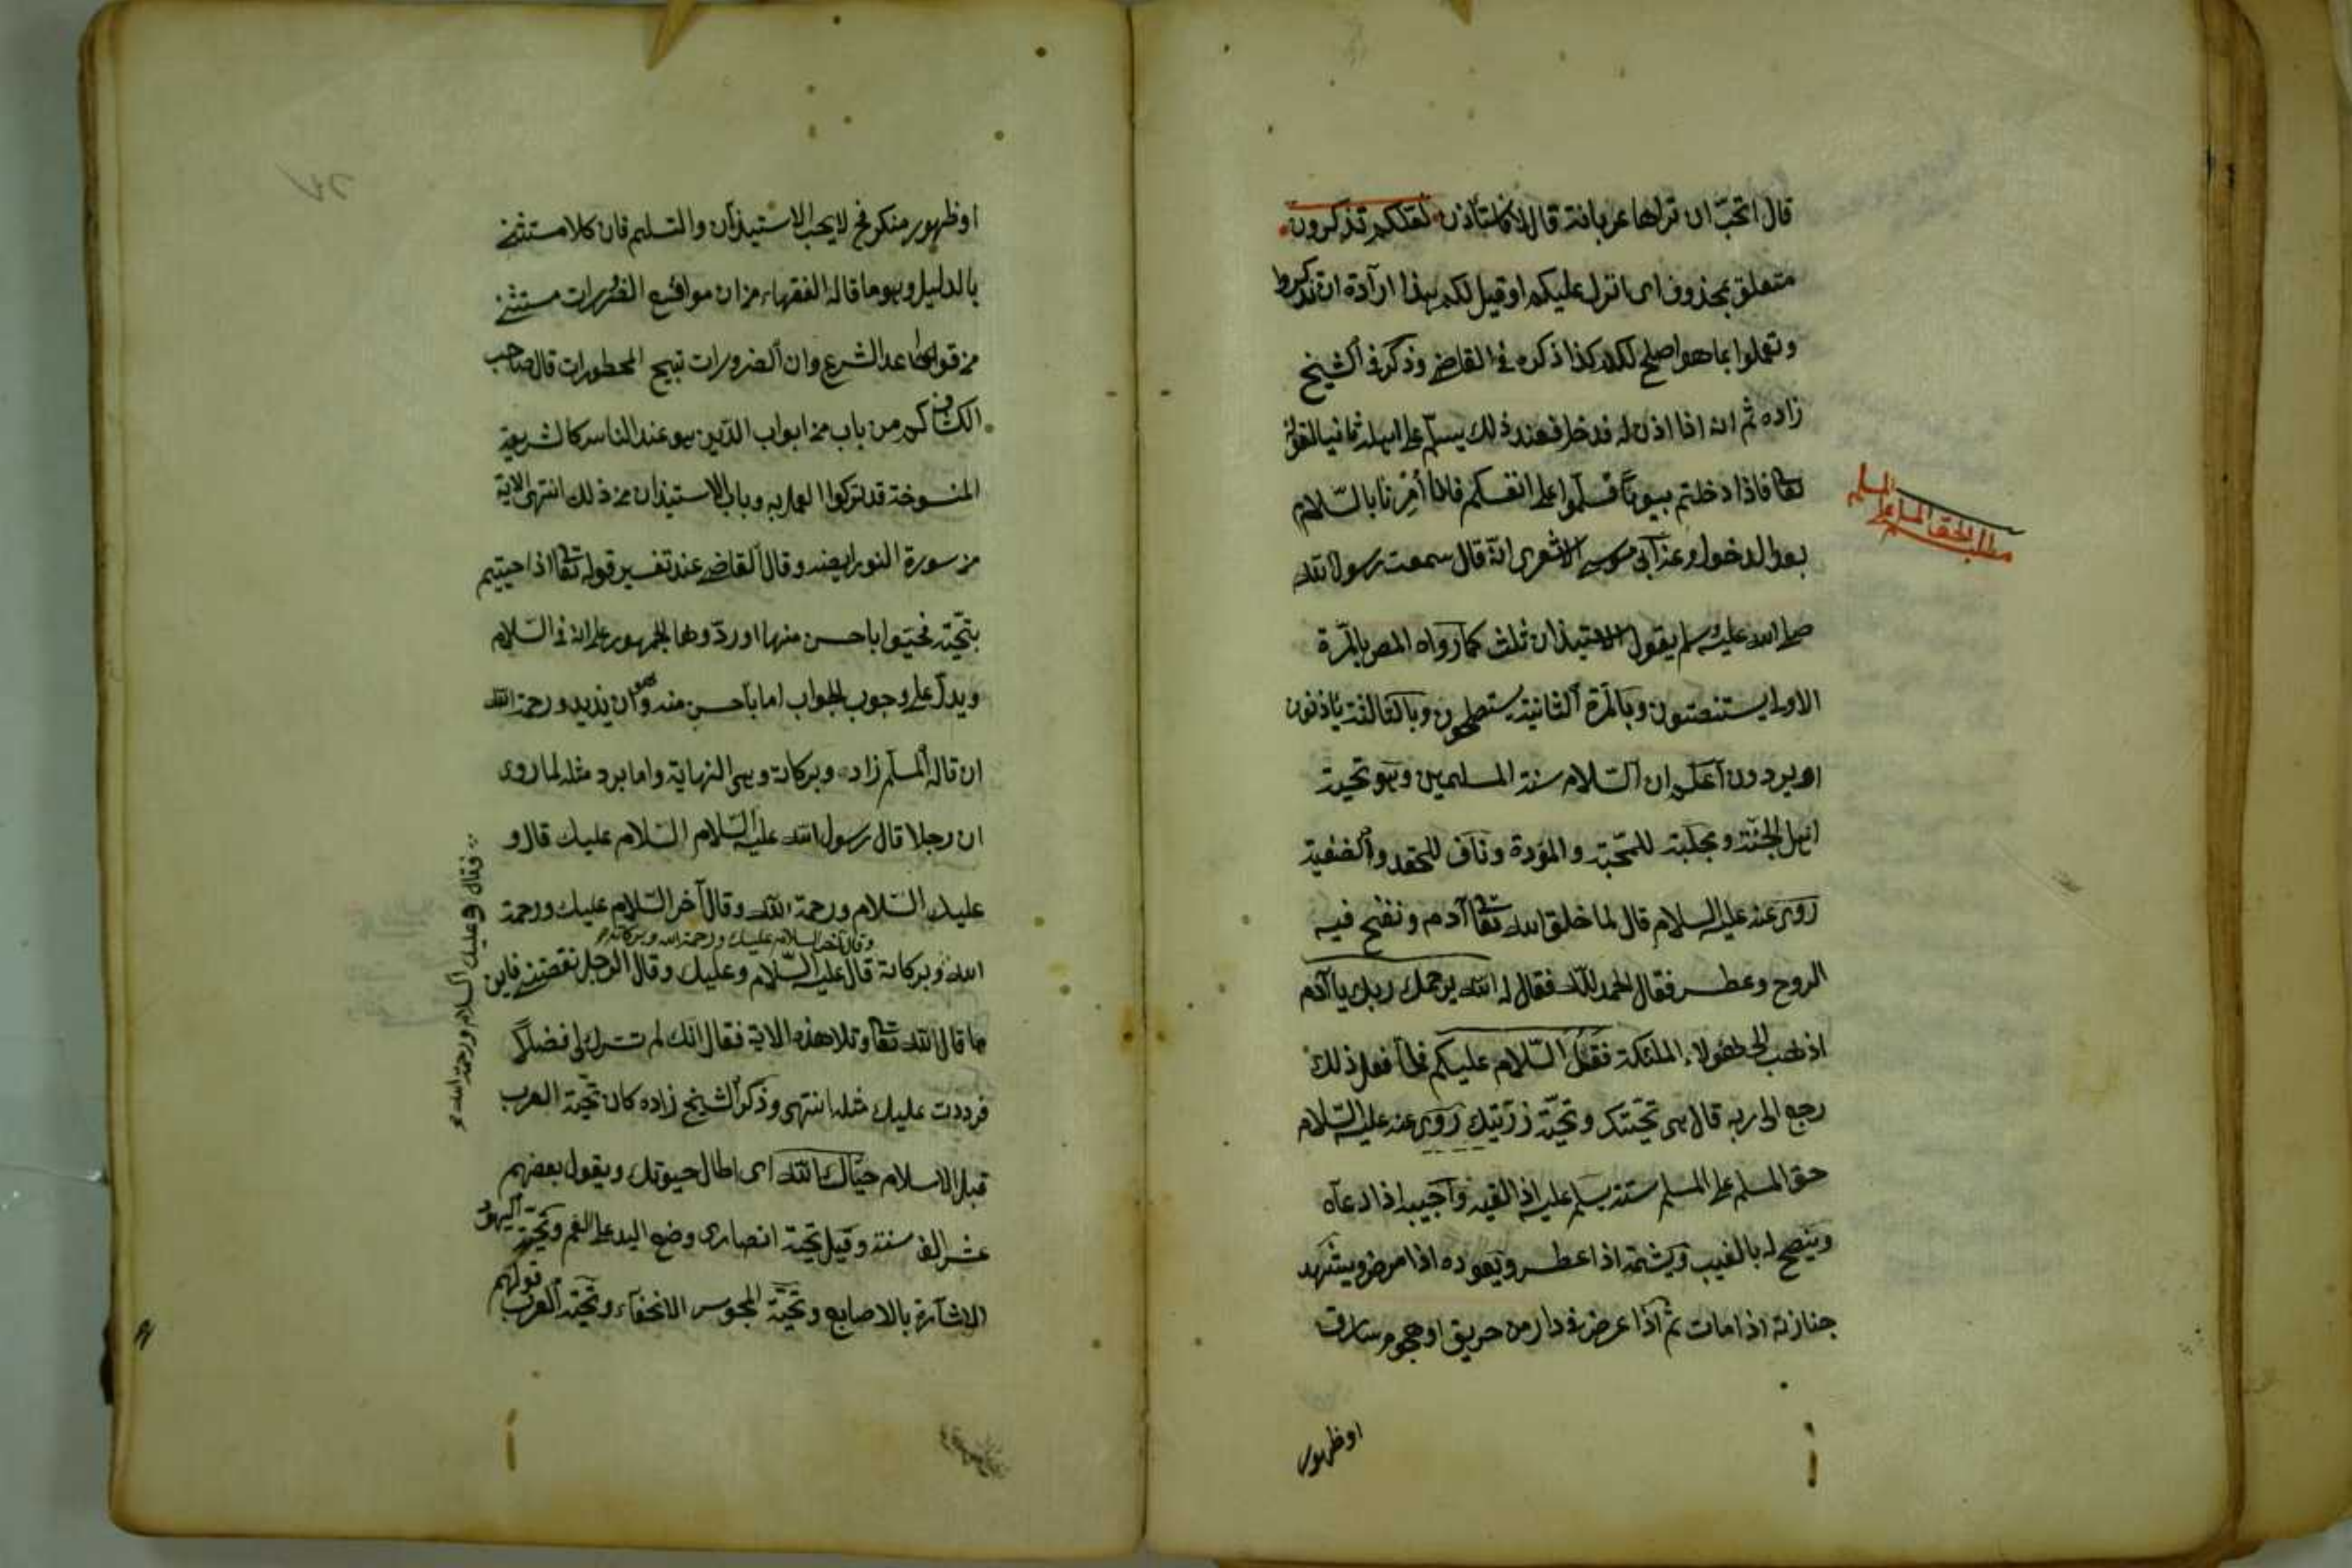 قال اتحب ان تراها عريانة قال لا قال فاستأذن لعلكم تذكرون
متعلق بمحذوف اى انزل عليكم او قيل لكم هذا ارادة ان تذكروا
وتعملوا بما هو اصلح لكم كذا ذكره فى القاضى وذكر فى الشيخ
زاده ثم انه اذا اذن له فدخل فعند ذلك يسلم على اهله ثانيا لقوله
تعا فاذا دخلتم بيوتا فسلموا على انفسكم فانا أمرنا بالسلام
بعد الدخول وعن ابى موسى الاشعرى انه قال سمعت رسول الله
صلى الله عليه وسلم يقول الاستيذان ثلث كما رواه المص بالمرة
الاولى يستنصتون وبالمرة الثانية يستصلحون وبالثالثة يأذنون
او يردون اعلم ان السلام سنة المسلمين وهو تحية
اهل الجنة ومجلبة للمحبة والمودة وناف للحقد والضغينة
روى عنه عليه السلام قال لما خلق الله تعا آدم ونفخ فيه
الروح وعطس فقال الحمد لله فقال له الله يرحمك ربك يا آدم
اذهب الى هؤلاء الملئكة فقل السلام عليكم فلما فعل ذلك
رجع الى ربه قال هى تحيتك وتحية ذريتك روى عنه عليه السلام
حق المسلم على المسلم ستة يسلم عليه اذا لقيه واجيبه اذا دعاه
وينصح له بالغيب ويشمته اذا عطس ويعوده اذا مرض ويشهد
جنازته اذا مات ثم اذا عرض فى دار من حريق او هجوم سارق
او ظهور
مطلب حق المسلم على المسلم
او ظهور منكر فح لا يجب الاستيذان والتسليم فان كلا مستثنى
بالدليل وهو ما قاله الفقهاء من ان مواقع الضرورات مستثنى
من قواعد الشرع وان الضرورات تبيح المحظورات قال صاحب
الكشاف كم من باب من ابواب الدين هو عند الناس كالشريعة
المنسوخة قد تركوا العمل به وباب الاستيذان من ذلك انتهى الاية
من سورة النور ايضا وقال القاضى عند تفسير قوله تعا اذا حييتم
بتحية فحيوا باحسن منها او ردوها الجمهور على انه فى السلام
ويدل على وجوب الجواب اما باحسن منه وهو ان يزيد ورحمة الله
ان قاله المسلم زاد وبركاته وهى النهاية واما برد مثله لما روى
ان رجلا قال رسول الله عليه السلام السلام عليك قال و
عليك السلام ورحمة الله وقال آخر السلام عليك ورحمة
وقال آخر السلام عليك ورحمة الله وبركاته
الله وبركاته قال عليه السلام وعليك وقال الرجل نقصتنى فاين
ما قال الله تعا وتلا هذه الاية فقال انك لم تترك لى فضلا
فرددت عليك مثله انتهى وذكر الشيخ زاده كان تحية العرب
قبل الاسلام حياك الله اى اطال حيوتك ويقول بعضهم
عش الف سنة وقيل تحية انصارى وضع اليد على الفم وتحية اليهود
الاشارة بالاصابع وتحية المجوس الانحناء وتحية العرب قولهم
فقال وعليك السلام ورحمة الله